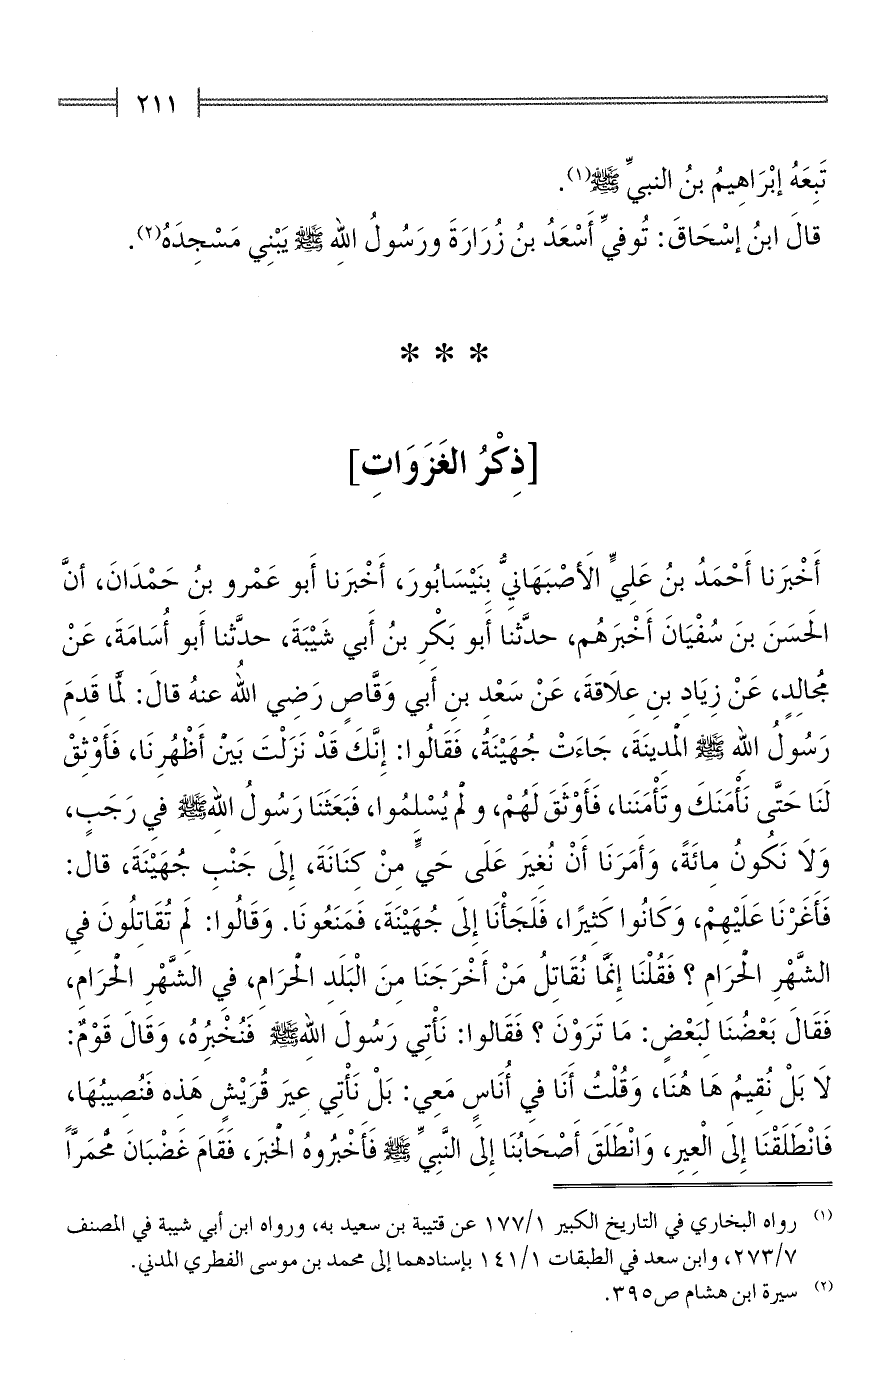 ٢١١
تَبِعَهُ إبْرَاهِيمُ بنُ النبيِّ ﷺ(١).
قالَ ابنُ إسْحَاقَ: تُوفيِّ أَسْعَدُ بنُ زُرَارَةَ ورَسُولُ اللهِ ﷺ يَبْنِي مَسْجِدَهُ(٢).
* * *
[ذِكْرُ الغَزَوَاتِ]
أَخْبَرَنا أحْمَدُ بنُ عَليٍّ الأَصْبَهَانيُّ بِنَيْسَابُورَ، أَخْبَرَنا أَبو عَمْرو بنُ حَمْدَانَ، أنَّ
الحَسَنَ بنَ سُفْيَانَ أَخْبَرَهُم، حدَّثنا أبو بَكْرِ بنُ أَبي شَيْبَةَ، حدَّثنا أبو أُسَامَةَ، عَنْ
مُجالِدٍ، عَنْ زِيَادِ بنِ عِلَاقةَ، عَنْ سَعْدِ بنِ أَبي وَقَّاصٍ رَضِي اللهُ عنهُ قالَ: لمَّا قَدِمَ
رَسُولُ اللهِ ﷺ المْدِينَةَ، جَاءَتْ جُهَيْنَةُ، فَقَالُوا: إنَّكَ قَدْ نَزَلْتَ بَينْ أَظْهُرِنَا، فَأَوْثِقْ
لَنَا حَتَّى نَأْمَنَكَ وتَأْمَننا، فَأَوْثَقَ لَهُمْ، و لمْ يُسْلِمُوا، فَبَعَثَنَا رَسُولُ اللهِﷺ في رَجَبٍ،
وَلَا نَكُونُ مائَةً، وَأَمَرَنَا أَنْ نُغِيرَ عَلَى حَيٍّ مِنْ كِنَانَةَ، إلَى جَنْبِ جُهَيْنَةَ، قال:
فَأَغَرْنَا عَلَيْهِمْ، وَكَانُوا كَثِيرًا، فَلَجَأْنَا إلَى جُهَيْنَةَ، فَمَنَعُونَا. وَقَالُوا: لمَ تُقَاتِلُونَ في
الشَّهْرِ الحْرَامِ ؟ فَقُلْنَا إنمَّا نُقَاتِلُ مَنْ أَخْرَجَنَا مِنَ الْبَلَدِ الحْرَامِ، في الشَّهْرِ الحْرَامِ،
فَقَالَ بَعْضُنَا لِبَعْضٍ: مَا تَرَوْنَ ؟ فَقَالوا: نَأْتي رَسُولَ اللهِﷺ فَنُخْبرُهُ، وَقَالَ قَوْمٌ:
لَا بَلْ نُقِيمُ هَا هُنَا، وَقُلْتُ أَنَا في أُنَاسٍ مَعِي: بَلْ نَأْتي عِيرَ قُرَيْشٍ هَذه فَنُصِيبُهَا،
فَانْطَلَقْنَا إلَى الْعِيرِ، وَانْطَلَقَ أَصْحَابُنَا إلىَ النَّبيِّ ﷺ فَأَخْبرُوهُ الخبَرَ، فَقَامَ غَضْبَانَ مُحْمَرًّا
(١) رواه البخاري في التاريخ الكبير ١٧٧/١ عن قتيبة بن سعيد به، ورواه ابن أبي شيبة في المصنف
٢٧٣/٧، وابن سعد في الطبقات ١٤١/١ بإسنادهما إلى محمد بن موسى الفطري المدني.
(٢) سيرة ابن هشام ص٣٩٥.